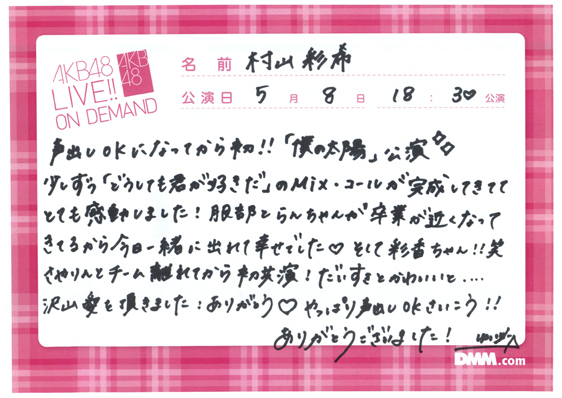 AKB48
LIVE!!
ON DEMAND
AKB
48
名 前 村山彩希
公演日 5 月 8 日 18 : 30 公演
声出しOKになってから初!!「僕の太陽」公演
少しずつ「どうしても君が好きだ」のMix・コールが完成してきてて
とても感動しました!服部とらんちゃんが卒業が近くなって
きてるから今日一緒に出れて幸せでした♡ そして彩香ちゃん!!笑
さやりんとチーム離れてから初共演!だいすきとかわいいと....
沢山愛を頂きました:ありがとう♡ やっぱり声出しOKさいこう!!
ありがとうございました!
DMM.com